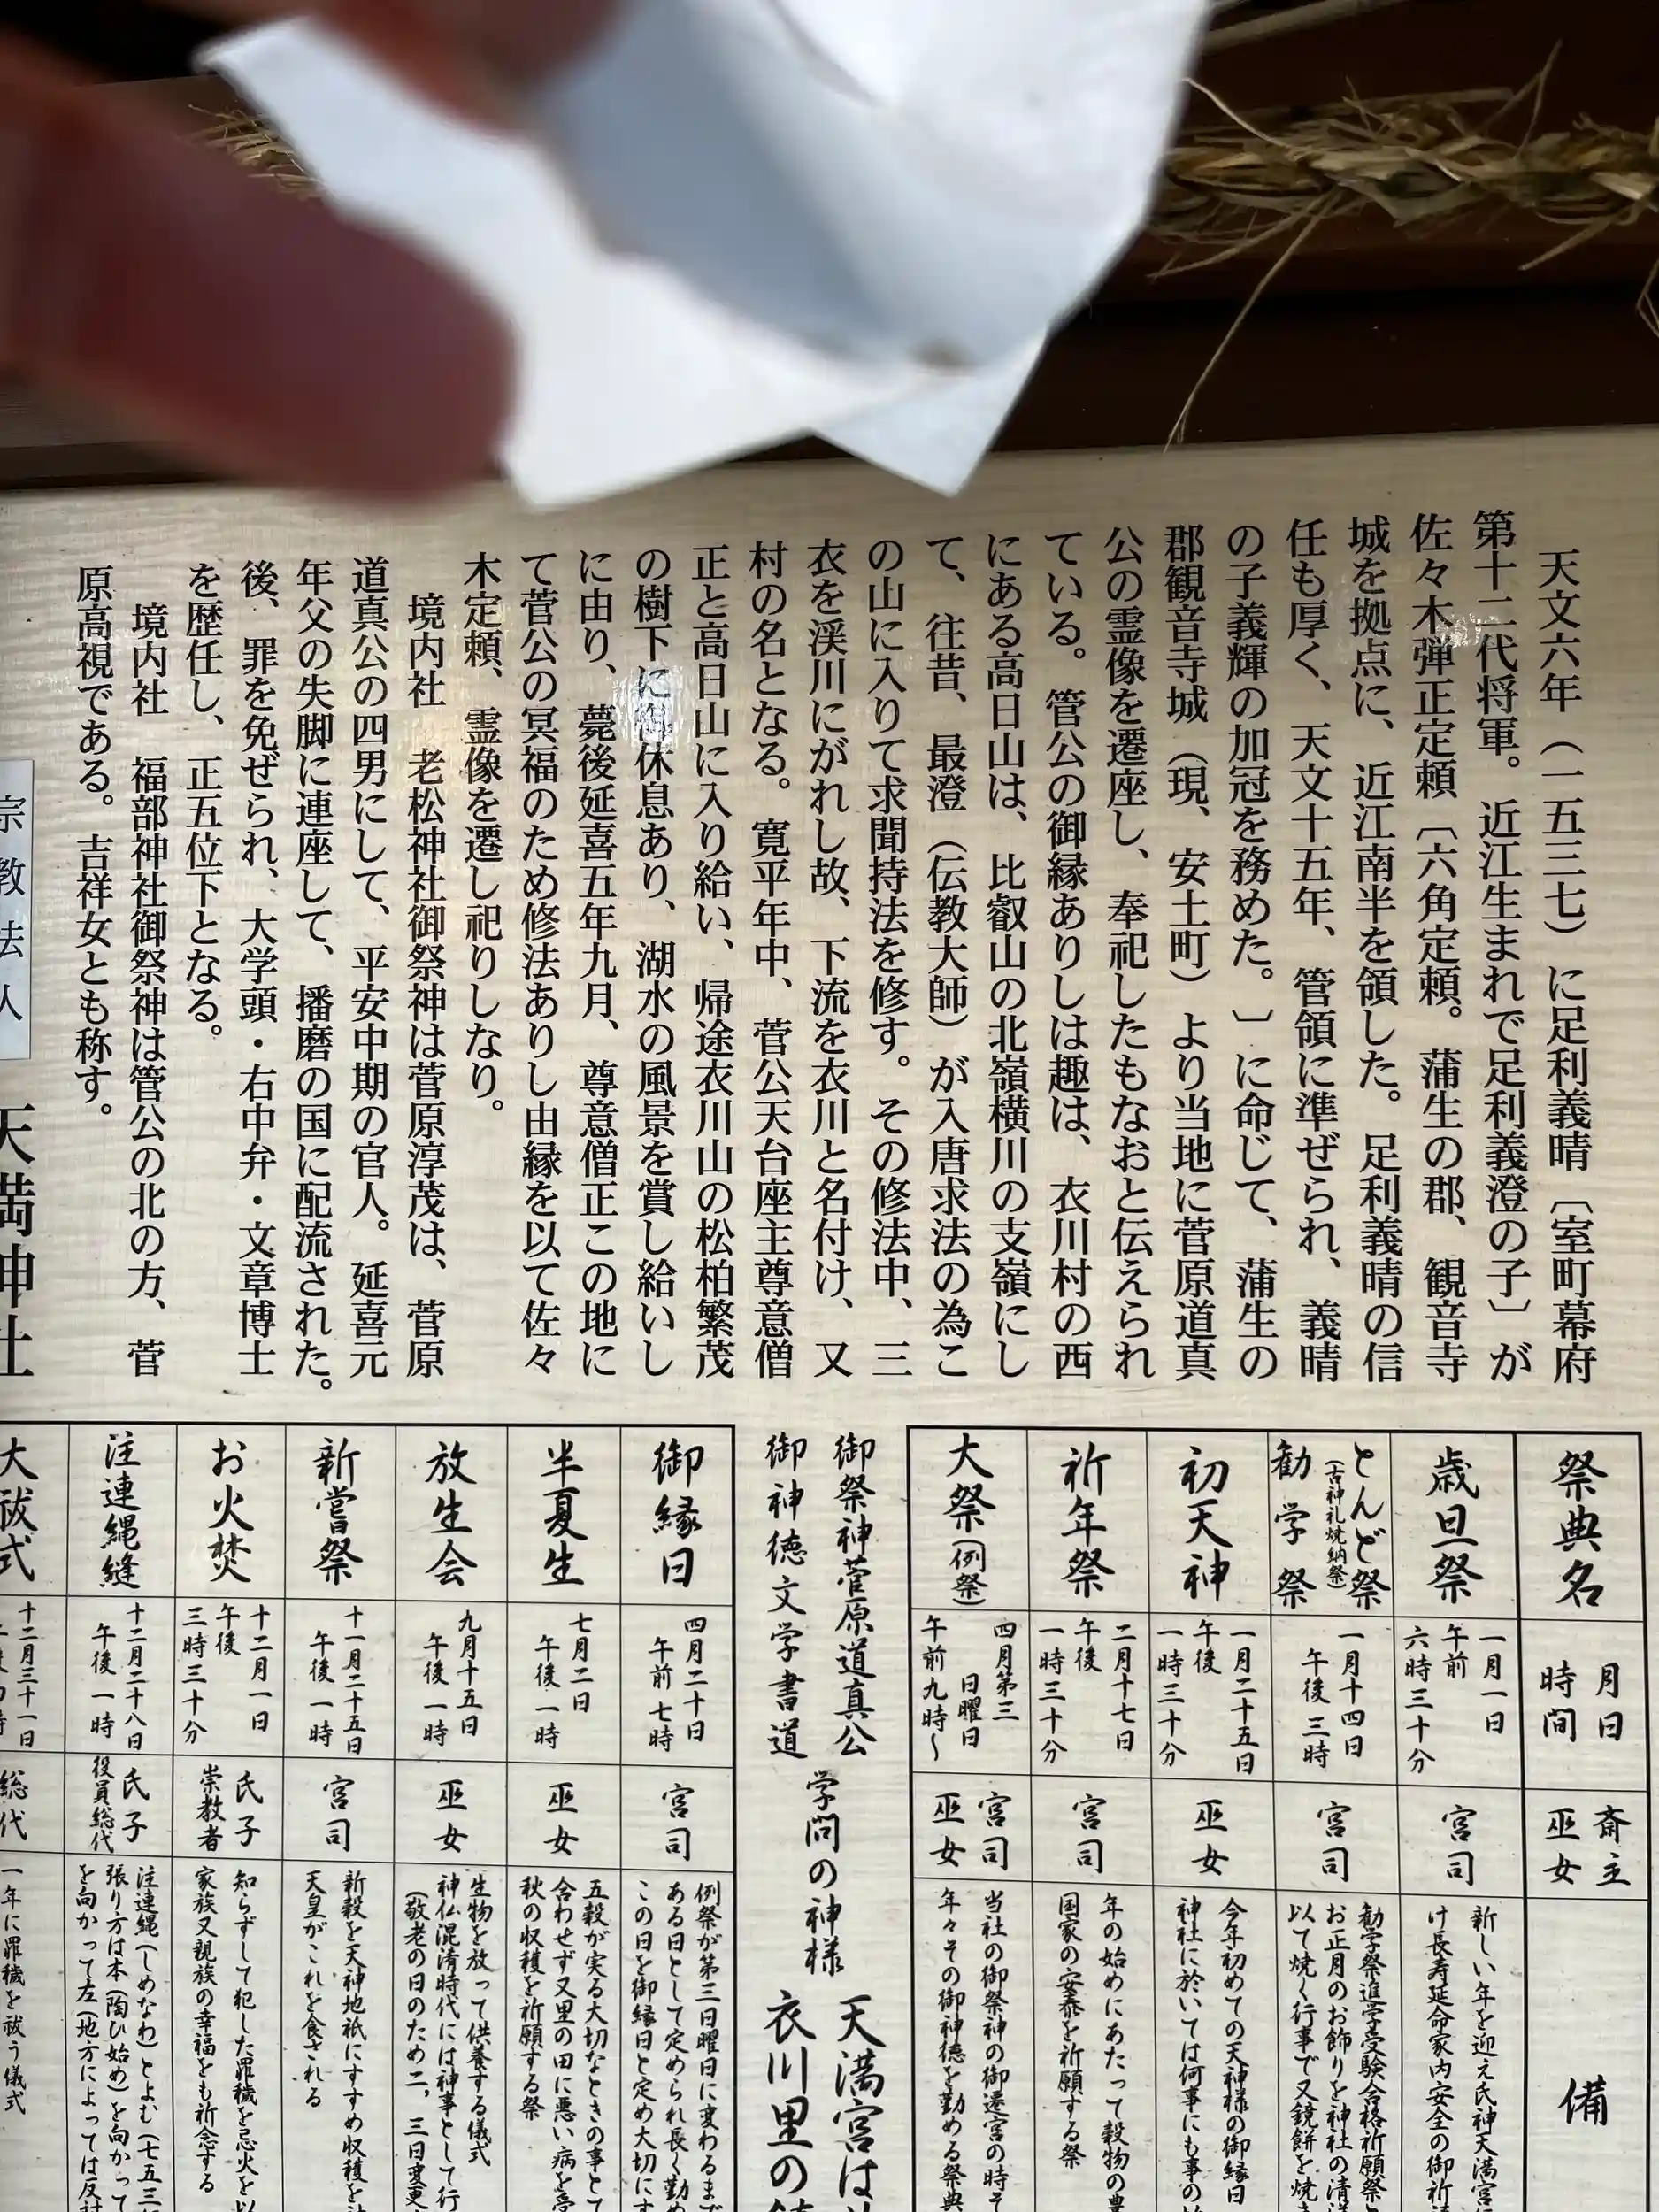 天文六年（一五三七）に足利義晴〔室町幕府
第十二代将軍。近江生まれで足利義澄の子〕が
佐々木弾正定頼〔六角定頼。蒲生の郡、観音寺
城を拠点に、近江南半を領した。足利義晴の信
任も厚く、天文十五年、管領に準ぜられ、義晴
の子義輝の加冠を務めた。〕に命じて、蒲生の
郡観音寺城（現、安土町）より当地に菅原道真
公の霊像を遷座し、奉祀したもなおと伝えられ
ている。管公の御縁ありしは趣は、衣川村の西
にある高日山は、比叡山の北嶺横川の支嶺にし
て、往昔、最澄（伝教大師）が入唐求法の為こ
の山に入りて求聞持法を修す。その修法中、三
衣を渓川にがれし故、下流を衣川と名付け、又
村の名となる。寛平年中、菅公天台座主尊意僧
正と高日山に入り給い、帰途衣川山の松柏繁茂
の樹下に御休息あり、湖水の風景を賞し給いし
に由り、薨後延喜五年九月、尊意僧正この地に
て菅公の冥福のため修法ありし由縁を以て佐々
木定頼、霊像を遷し祀りしなり。
境内社　老松神社御祭神は菅原淳茂は、菅原
道真公の四男にして、平安中期の官人。延喜元
年父の失脚に連座して、播磨の国に配流された。
後、罪を免ぜられ、大学頭・右中弁・文章博士
を歴任し、正五位下となる。
境内社　福部神社御祭神は管公の北の方、菅
原高視である。吉祥女とも称す。
宗教法人　天満神社
祭典名
月日
時間
斎主
巫女
備
歳旦祭
一月一日
午前
六時三十分
宮司
新しい年を迎え氏神天満宮に
け長寿延命家内安全の御祈
とんど祭
（古神礼焼納祭）
勧学祭
一月十四日
午後三時
宮司
勧学祭進学受験合格祈願祭と
お正月のお飾りを神社の清
以て焼く行事で又鏡餅を焼き
初天神
一月二十五日
午後
一時三十分
巫女
今年初めての天神様の御縁日
神社に於いては何事にも事の
祈年祭
二月十七日
午後
一時三十分
宮司
年の始めにあたって穀物の豊
国家の安泰を祈願する祭
大祭（例祭）
四月第三
日曜日
午前九時〜
宮司
巫女
当社の御祭神の御遷宮の時そ
年々その御神徳を勤める祭典
御祭神菅原道真公
御神徳文学書道
学問の神様
天満宮は
衣川里の
御縁日
四月二十日
午前七時
宮司
例祭が第三日曜日に変わるまで
ある日として定められ長く勤め
この日を御縁日と定め大切にす
半夏生
七月二日
午後一時
巫女
五穀が実る大切なときの事とて
合わせず又里の田に悪い病を受
秋の収穫を祈願する祭
放生会
九月十五日
午後一時
巫女
生物を放って供養する儀式
神仏混淆時代には神事として行
（敬老の日のため二，三日変更
新嘗祭
十一月二十五日
午後一時
宮司
新穀を天神地祇にすすめ収穫を
天皇がこれを食される
お火焚
十二月一日
午後
三時三十分
氏子
崇教者
知らずして犯した罪穢を忌火を以
家族又親族の幸福をも祈念する
注連縄縫
十二月二十八日
午後一時
氏子
役員総代
注連縄（しめなわ）とよむ（七五三
張り方は本（陶ひ始め）を向かって
を向かって左（地方によっては反対
大祓式
十二月三十一日
総代
一年に罪穢を祓う儀式